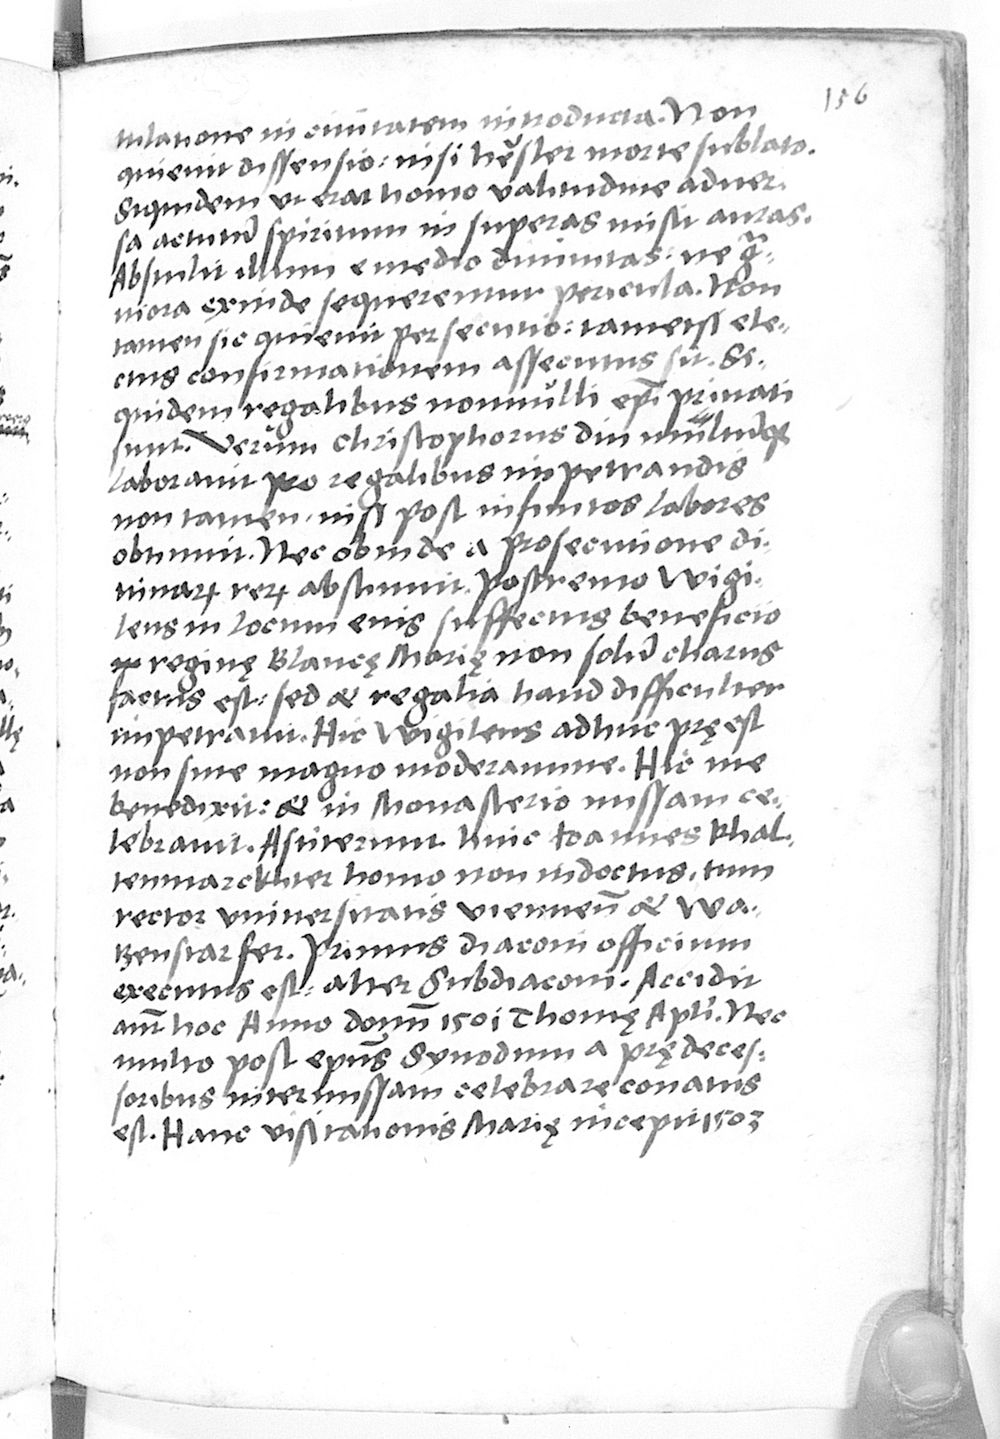 156
tulatione in ciuitatem introducta. Non
quieuit dissensio: nisi hẽsler morte sublato.
Siquidem ut erat homo valitudine aduer-
sa actutũ spiritum in superas misit auras.
Abstulit illum e medio diuinitas: ne gͣ-
uiora exinde sequerentur pericula. Non
tamen sic quieuit persecutio: tametsi ele-
ctus confirmationem assecutus sit. Si-
quidem regalibus nonnulli ep̃i priuati
sunt. Verum Christophorus diu multũqꝫ
laborauit pro regalibus impetrandis
non tamen nisi post infinitos labores
obtinuit. Nec obinde a prosecutione di-
uinaꝝ reꝝ abstinuit. Postremo Wigi-
leus in locum eius suffectus beneficio
reginę Blancę Marię non solũ charus
factus est: sed & regalia haud difficulter
impetrauit. Hic Wigileus adhuc pręest
non sine magno moderamine. Hic me
benedixit: & in Monasterio missam ce-
lebrauit. Astiterunt huic Ioannes Khal-
tenmarckhter homo non indoctus, tum
rector vniuersitatis viennen̄ & Wa-
tzenstarfer. Primus diaconi officium
executus est: alter Subdiaconi. Accidit
aũt hoc Anno domñ 1501 Thomę Apli. Nec
multo post ep̃us Synodum a prędeces-
soribus intermissam celebrare conatus
est. Hanc visitationis Marię incepit 1503